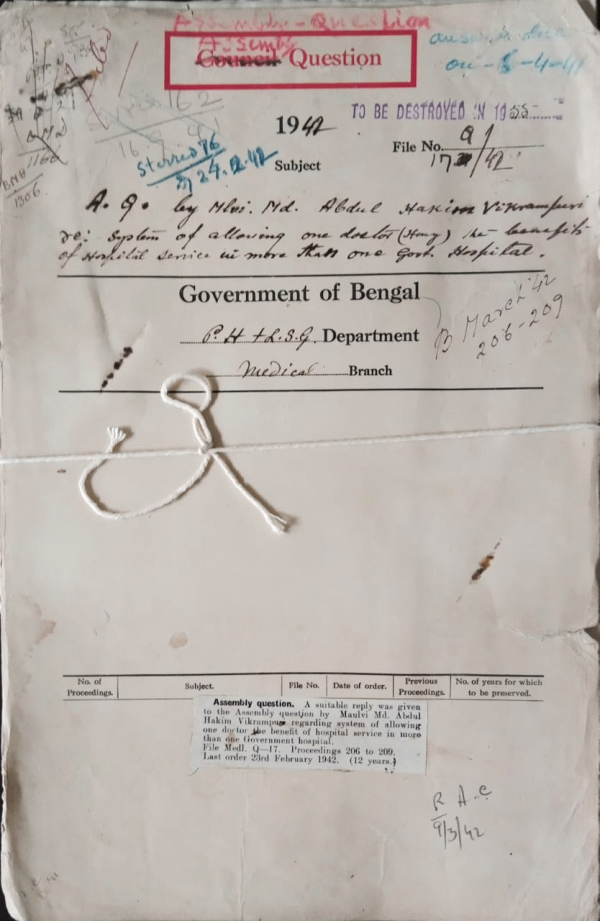 Assembly-Question
Assembly
Council Question
1942
TO BE DESTROYED IN 1955
File No. Q/
17/42
Starred 76
24.2.42
Subject
A. Q. by Mlvi. Md. Abdul Hakim Vikrampuri
re: System of allowing one doctor (Hony) the benefits
of Hospital service in more than one Govt. Hospital.
Government of Bengal
P. H & L. S. G. Department
Medical Branch
B March '42
206-209
No. of Proceedings. Subject. File No. Date of order. Previous Proceedings. No. of years for which to be preserved.
Assembly question. A suitable reply was given
to the Assembly question by Maulvi Md. Abdul
Hakim Vikrampuri regarding system of allowing
one doctor the benefit of hospital service in more
than one Government hospital.
File Medl. Q—17. Proceedings 206 to 209.
Last order 23rd February 1942. (12 years.)
9/3/42